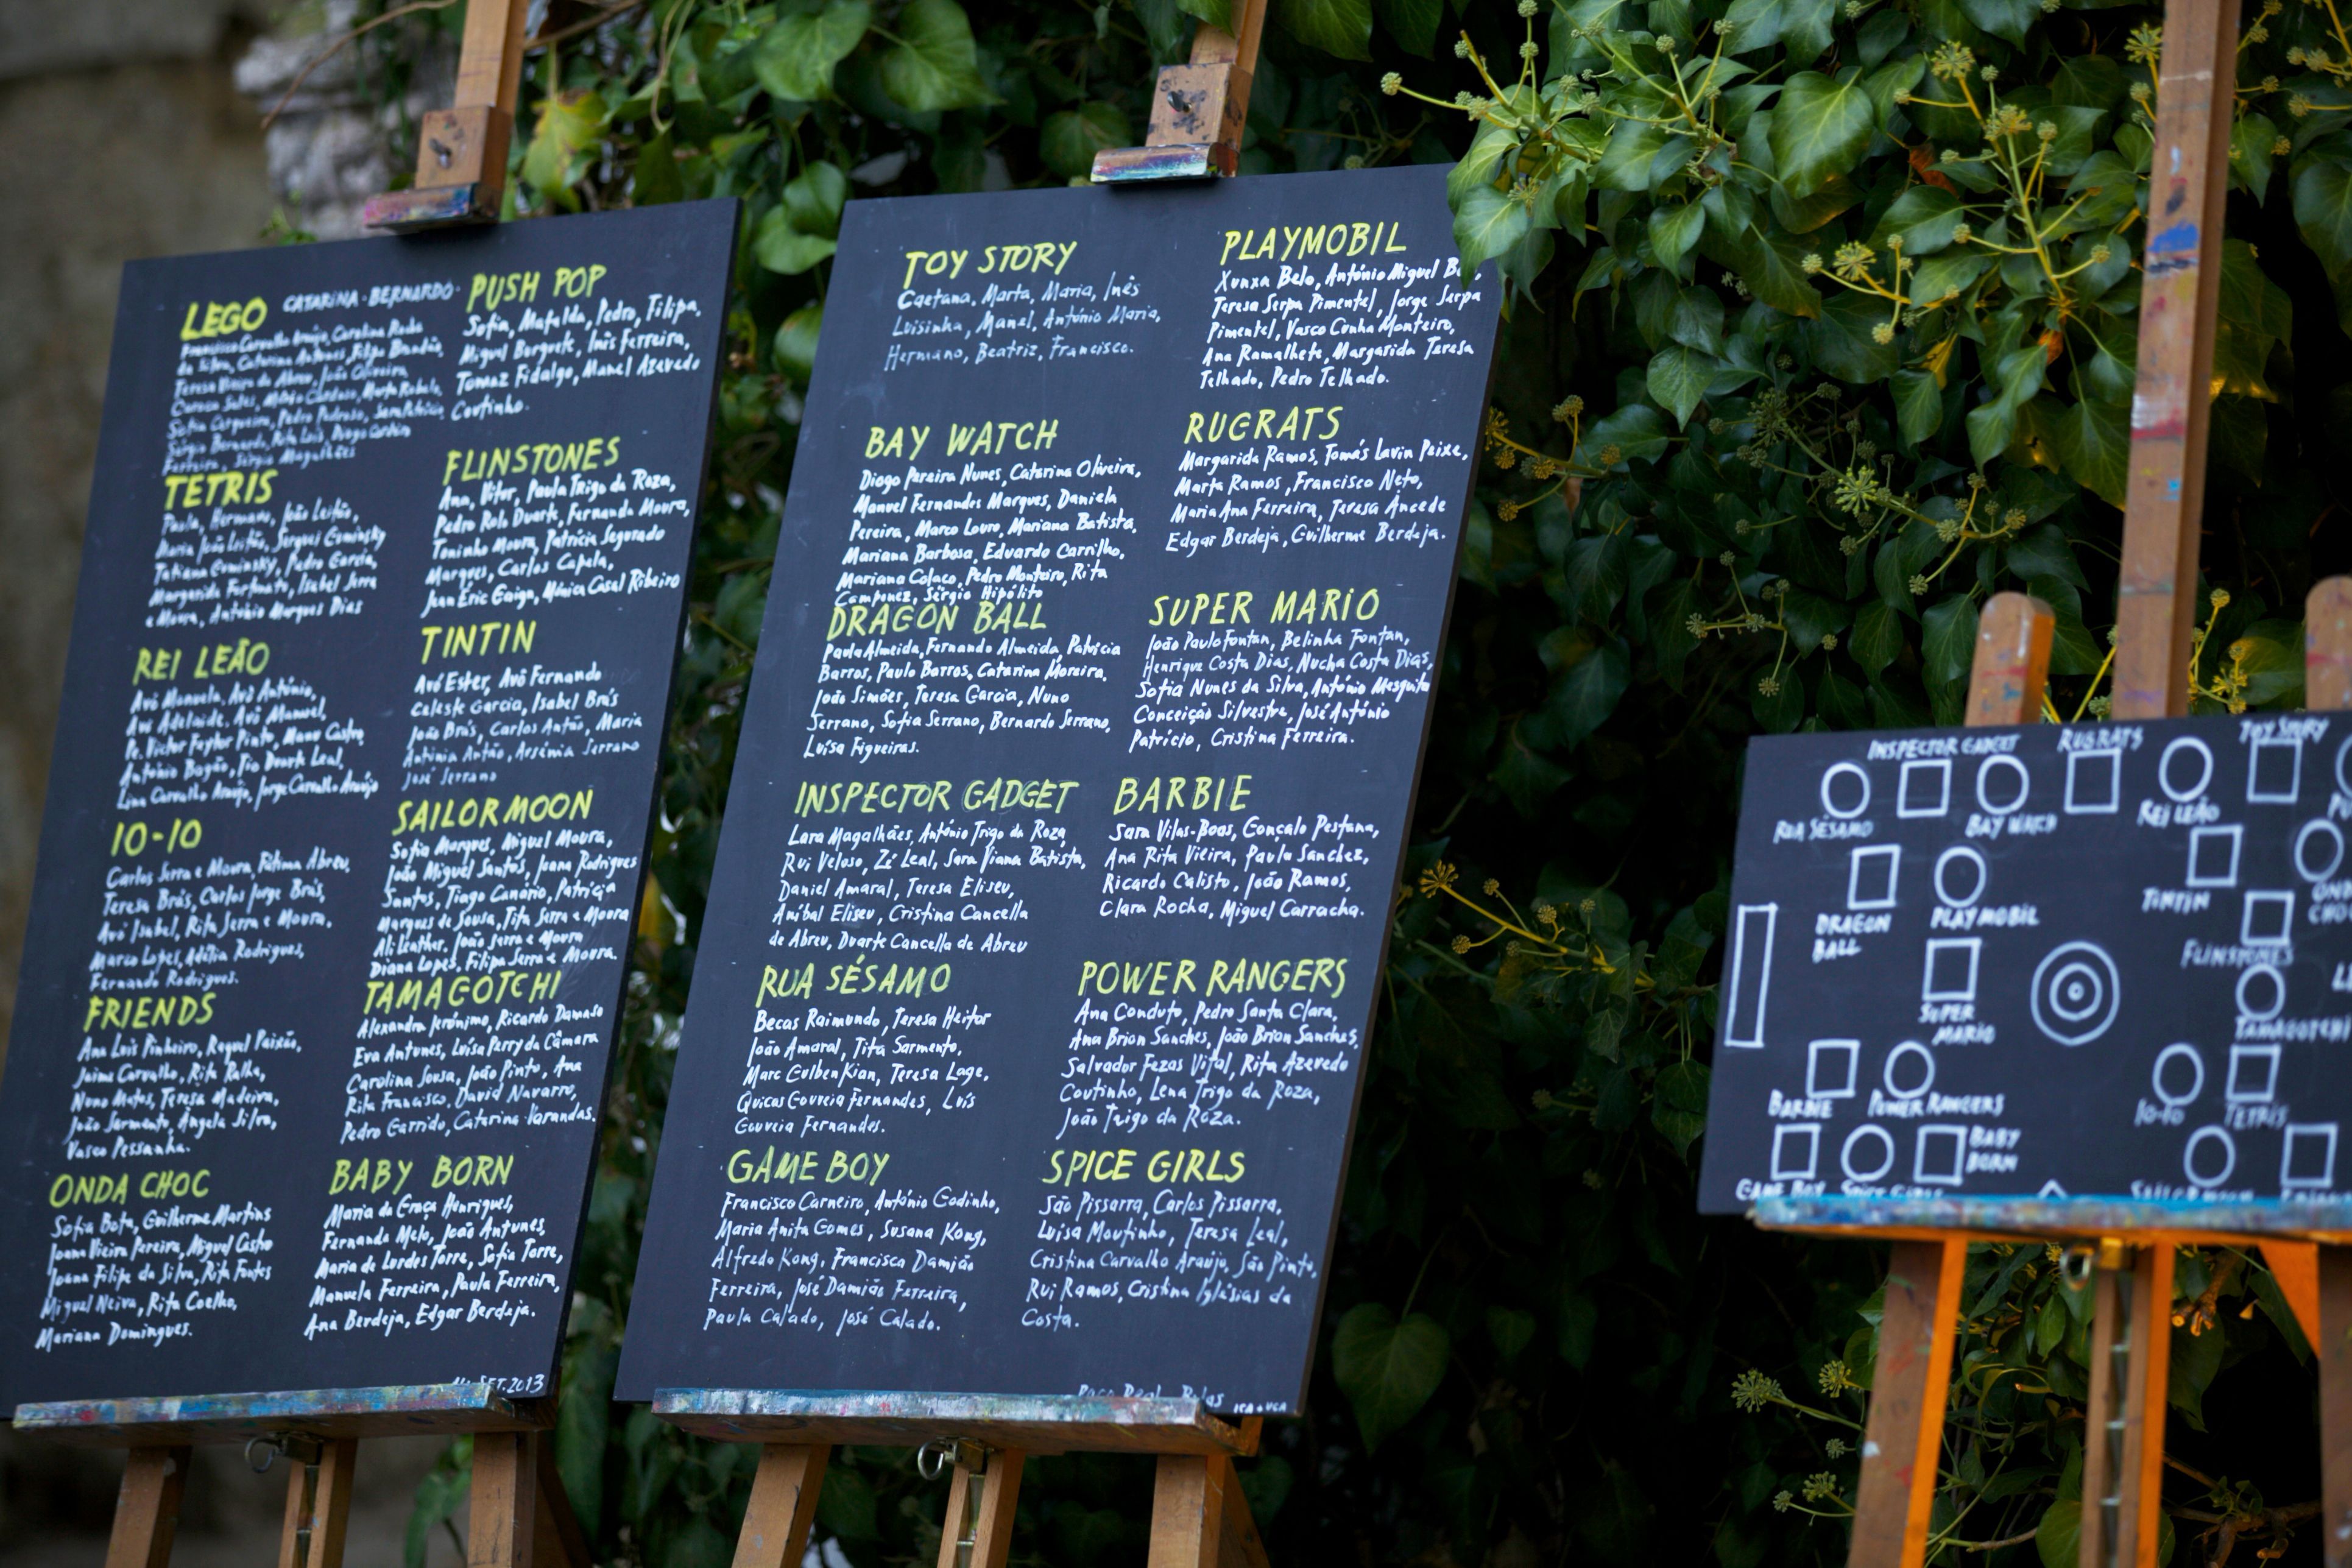 LEGO
CATARINA · BERNARDO
Francisco Carvalho Araújo, Carolina Rocha
da Silva, Catarina Antunes, Filipa Brandão,
Teresa Vieira de Abreu, João Oliveira,
Sales, Cardoso, Marta Rebelo,
Sofia Cerqueira, Pedro Pedroso, Sara Patrício,
Sérgio Bernardo, Rita Luís, Diogo
Ferreira, Sérgio Magalhães
TETRIS
Paula, Hermano, João Leitão,
Maria João Leitão, Serguei Guminsky
Tatiana Guminsky, Pedro Garcia,
Margarida Fortunato, Isabel Serra
e Moura, António Marques Dias
REI LEÃO
Avó Manuela, Avô António,
Avó Adelaide, Avô Manuel,
Pe. Victor Feytor Pinto, Mano Castro,
António Bagão, Tio Duarte Leal,
Lina Carvalho Araújo, Jorge Carvalho Araújo
10-10
Carlos Serra e Moura, Fátima Abreu,
Teresa Brás, Carlos Jorge Brás,
Avó Isabel, Rita Serra e Moura,
Marco Lopes, Adélia Rodrigues,
Fernando Rodrigues.
FRIENDS
Ana Luis Pinheiro, Raquel Paixão,
Jaime Carvalho, Rita Ralha,
Nuno Matos, Teresa Madeira,
João Sarmento, Ângela Silva,
Vasco Pessanha.
ONDA CHOC
Sofia Bota, Guilherme Martins
Joana Vieira Pereira, Miguel Castro
Joana Filipe da Silva, Rita Fontes
Miguel Neiva, Rita Coelho,
Mariana Domingues.
PUSH POP
Sofia, Mafalda, Pedro, Filipa,
Miguel Borguete, Inês Ferreira,
Tomaz Fidalgo, Manel Azevedo
Coutinho.
FLINSTONES
Ana, Vitor, Paula Trigo da Roza,
Pedro Rolo Duarte, Fernanda Moura,
Toninho Moura, Patrícia Segurado
Marques, Carlos Capela,
Jean Eric Gaign, Mónica Casal Ribeiro
TINTIN
Avó Ester, Avô Fernando
Celeste Garcia, Isabel Brás
João Brás, Carlos Antão, Maria
Antónia Antão, Arsénia Serrano
José Serrano
SAILORMOON
Sofia Marques, Miguel Moura,
João Miguel Santos, Joana Rodrigues
Santos, Tiago Canário, Patrícia
Marques de Sousa, Tita Serra e Moura
Ali Leather, João Serra e Moura
Diana Lopes, Filipa Serra e Moura.
TAMAGOTCHI
Alexandra Jerónimo, Ricardo Damaso
Eva Antunes, Luísa Perry da Câmara
Carolina Sousa, João Pinto, Ana
Rita Francisco, David Navarro,
Pedro Garrido, Catarina Varandas.
BABY BORN
Maria da Graça Henriques,
Fernanda Melo, João Antunes,
Maria de Lurdes Torre, Sofia Torre,
Manuela Ferreira, Paula Ferreira,
Ana Berdeja, Edgar Berdeja.
SET. 2013
TOY STORY
Caetana, Marta, Maria, Inês
Luisinha, Manel, António Maria,
Hermano, Beatriz, Francisco.
BAY WATCH
Diogo Pereira Nunes, Catarina Oliveira,
Manuel Fernandes Marques, Daniela
Pereira, Marco Louro, Mariana Batista,
Mariana Barbosa, Eduardo Carrilho,
Mariana Colaço, Pedro Monteiro, Rita
Camponez, Sérgio Hipólito
DRAGON BALL
Paula Almeida, Fernando Almeida, Patrícia
Barros, Paulo Barros, Catarina Moreira,
João Simões, Teresa Garcia, Nuno
Serrano, Sofia Serrano, Bernardo Serrano,
Luísa Figueiras.
INSPECTOR GADGET
Lara Magalhães, António Trigo da Roza,
Rui Veloso, Zé Leal, Sara Viana Batista,
Daniel Amaral, Teresa Eliseu,
Aníbal Eliseu, Cristina Cancella
de Abreu, Duarte Cancella de Abreu
RUA SÉSAMO
Becas Raimundo, Teresa Heitor
João Amaral, Tita Sarmento,
Marc Gulbenkian, Teresa Lage,
Quicas Gouveia Fernandes, Luís
Gouveia Fernandes.
GAME BOY
Francisco Carneiro, António Godinho,
Maria Anita Gomes, Susana Kong,
Alfredo Kong, Francisca Damião
Ferreira, José Damião Ferreira,
Paula Calado, José Calado.
PLAYMOBIL
Xunxa Belo, António Miguel
Teresa Serpa Pimentel, Jorge Serpa
Pimentel, Vasco Cunha Monteiro,
Ana Ramalhete, Margarida Teresa
Telhado, Pedro Telhado.
RUGRATS
Margarida Ramos, Tomás Lavin Peixe,
Marta Ramos, Francisco Neto,
Maria Ana Ferreira, Teresa Ancede
Edgar Berdeja, Guilherme Berdeja.
SUPER MARIO
João Paulo Fontan, Belinha Fontan,
Henrique Costa Dias, Nucha Costa Dias,
Sofia Nunes da Silva, António Mesquita
Conceição Silvestre, José António
Patrício, Cristina Ferreira.
BARBIE
Sara Vilas-Boas, Gonçalo Pestana,
Ana Rita Vieira, Paula Sanchez,
Ricardo Calisto, João Ramos,
Clara Rocha, Miguel Carracha.
POWER RANGERS
Ana Conduto, Pedro Santa Clara,
Ana Brion Sanches, João Brion Sanches,
Salvador Fezas Vital, Rita Azevedo
Coutinho, Lena Trigo da Roza,
João Trigo da Roza.
SPICE GIRLS
São Pissarra, Carlos Pissarra,
Luísa Moutinho, Teresa Leal,
Cristina Carvalho Araújo, São Pinto,
Rui Ramos, Cristina Iglésias da
Costa.
INSPECTOR GADGET
RUGRATS
TOY STORY
RUA SÉSAMO
BAY WATCH
REI LEÃO
DRAGON
BALL
PLAYMOBIL
TINTIN
FLINSTONES
SUPER
MARIO
TAMAGOTCHI
BARBIE
POWER RANGERS
10-10
TETRIS
BABY
BORN
GAME BOY
SPICE GIRLS
SAILORMOON